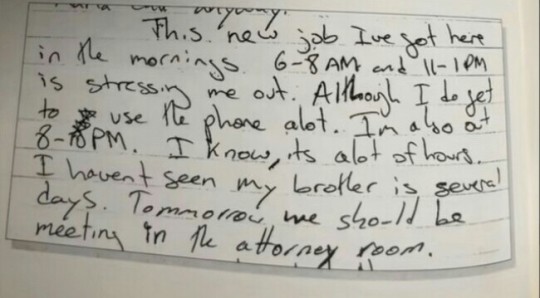 anyway.
This new job I've got here
in the mornings 6-8AM and 11-1PM
is stressing me out. Although I do get
to use the phone alot. I'm also out
8-PM. I know, its alot of hours.
I havent seen my brother is several
days. Tommorrow we should be
meeting in the attorney room.